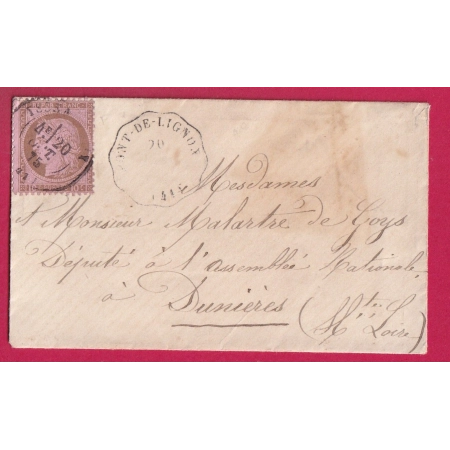 PONT-DE-LIGNON
20
Mesdames
et Monsieur Malartre de Goys
Député à l'Assemblée Nationale,
à
Dunières
(Hte Loire)